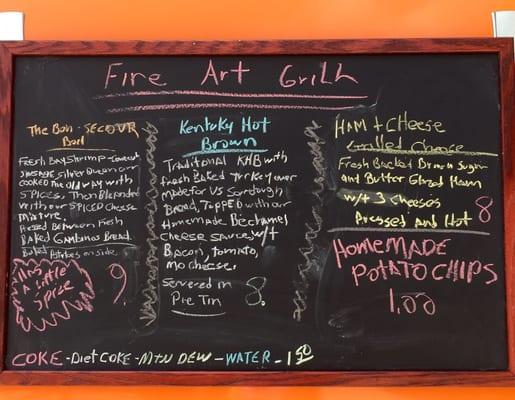 Fire Art Grill
The Bon-Secour
Boil
Fresh Bay Shrimp
sausage, Silver Queen corn
cooked the old way with
SPICES, Then Blended
with our SPICED Cheese
Mixture.
Pressed Between Fresh
Baked Gambinos Bread.
Baked Potatoes on side.
Has
A Little
Spice
9
Kentuky Hot
Brown
Traditional KHB with
fresh Baked Turkey over
made for us Sourdough
Bread, Topped with our
Homemade Bechamel
Cheese sauce, w/t
Bacon, tomato,
mo cheese.
Served in
Pie Tin
8.
HAM + CHEESE
Grilled Cheese
Fresh Backed Brown Sugar
and Butter Glazed Ham
w/t 3 Cheeses
Pressed and Hot
8
HOMEMADE
POTATO CHIPS
1.00
COKE - Diet COKE - MTN DEW - WATER - 1 50